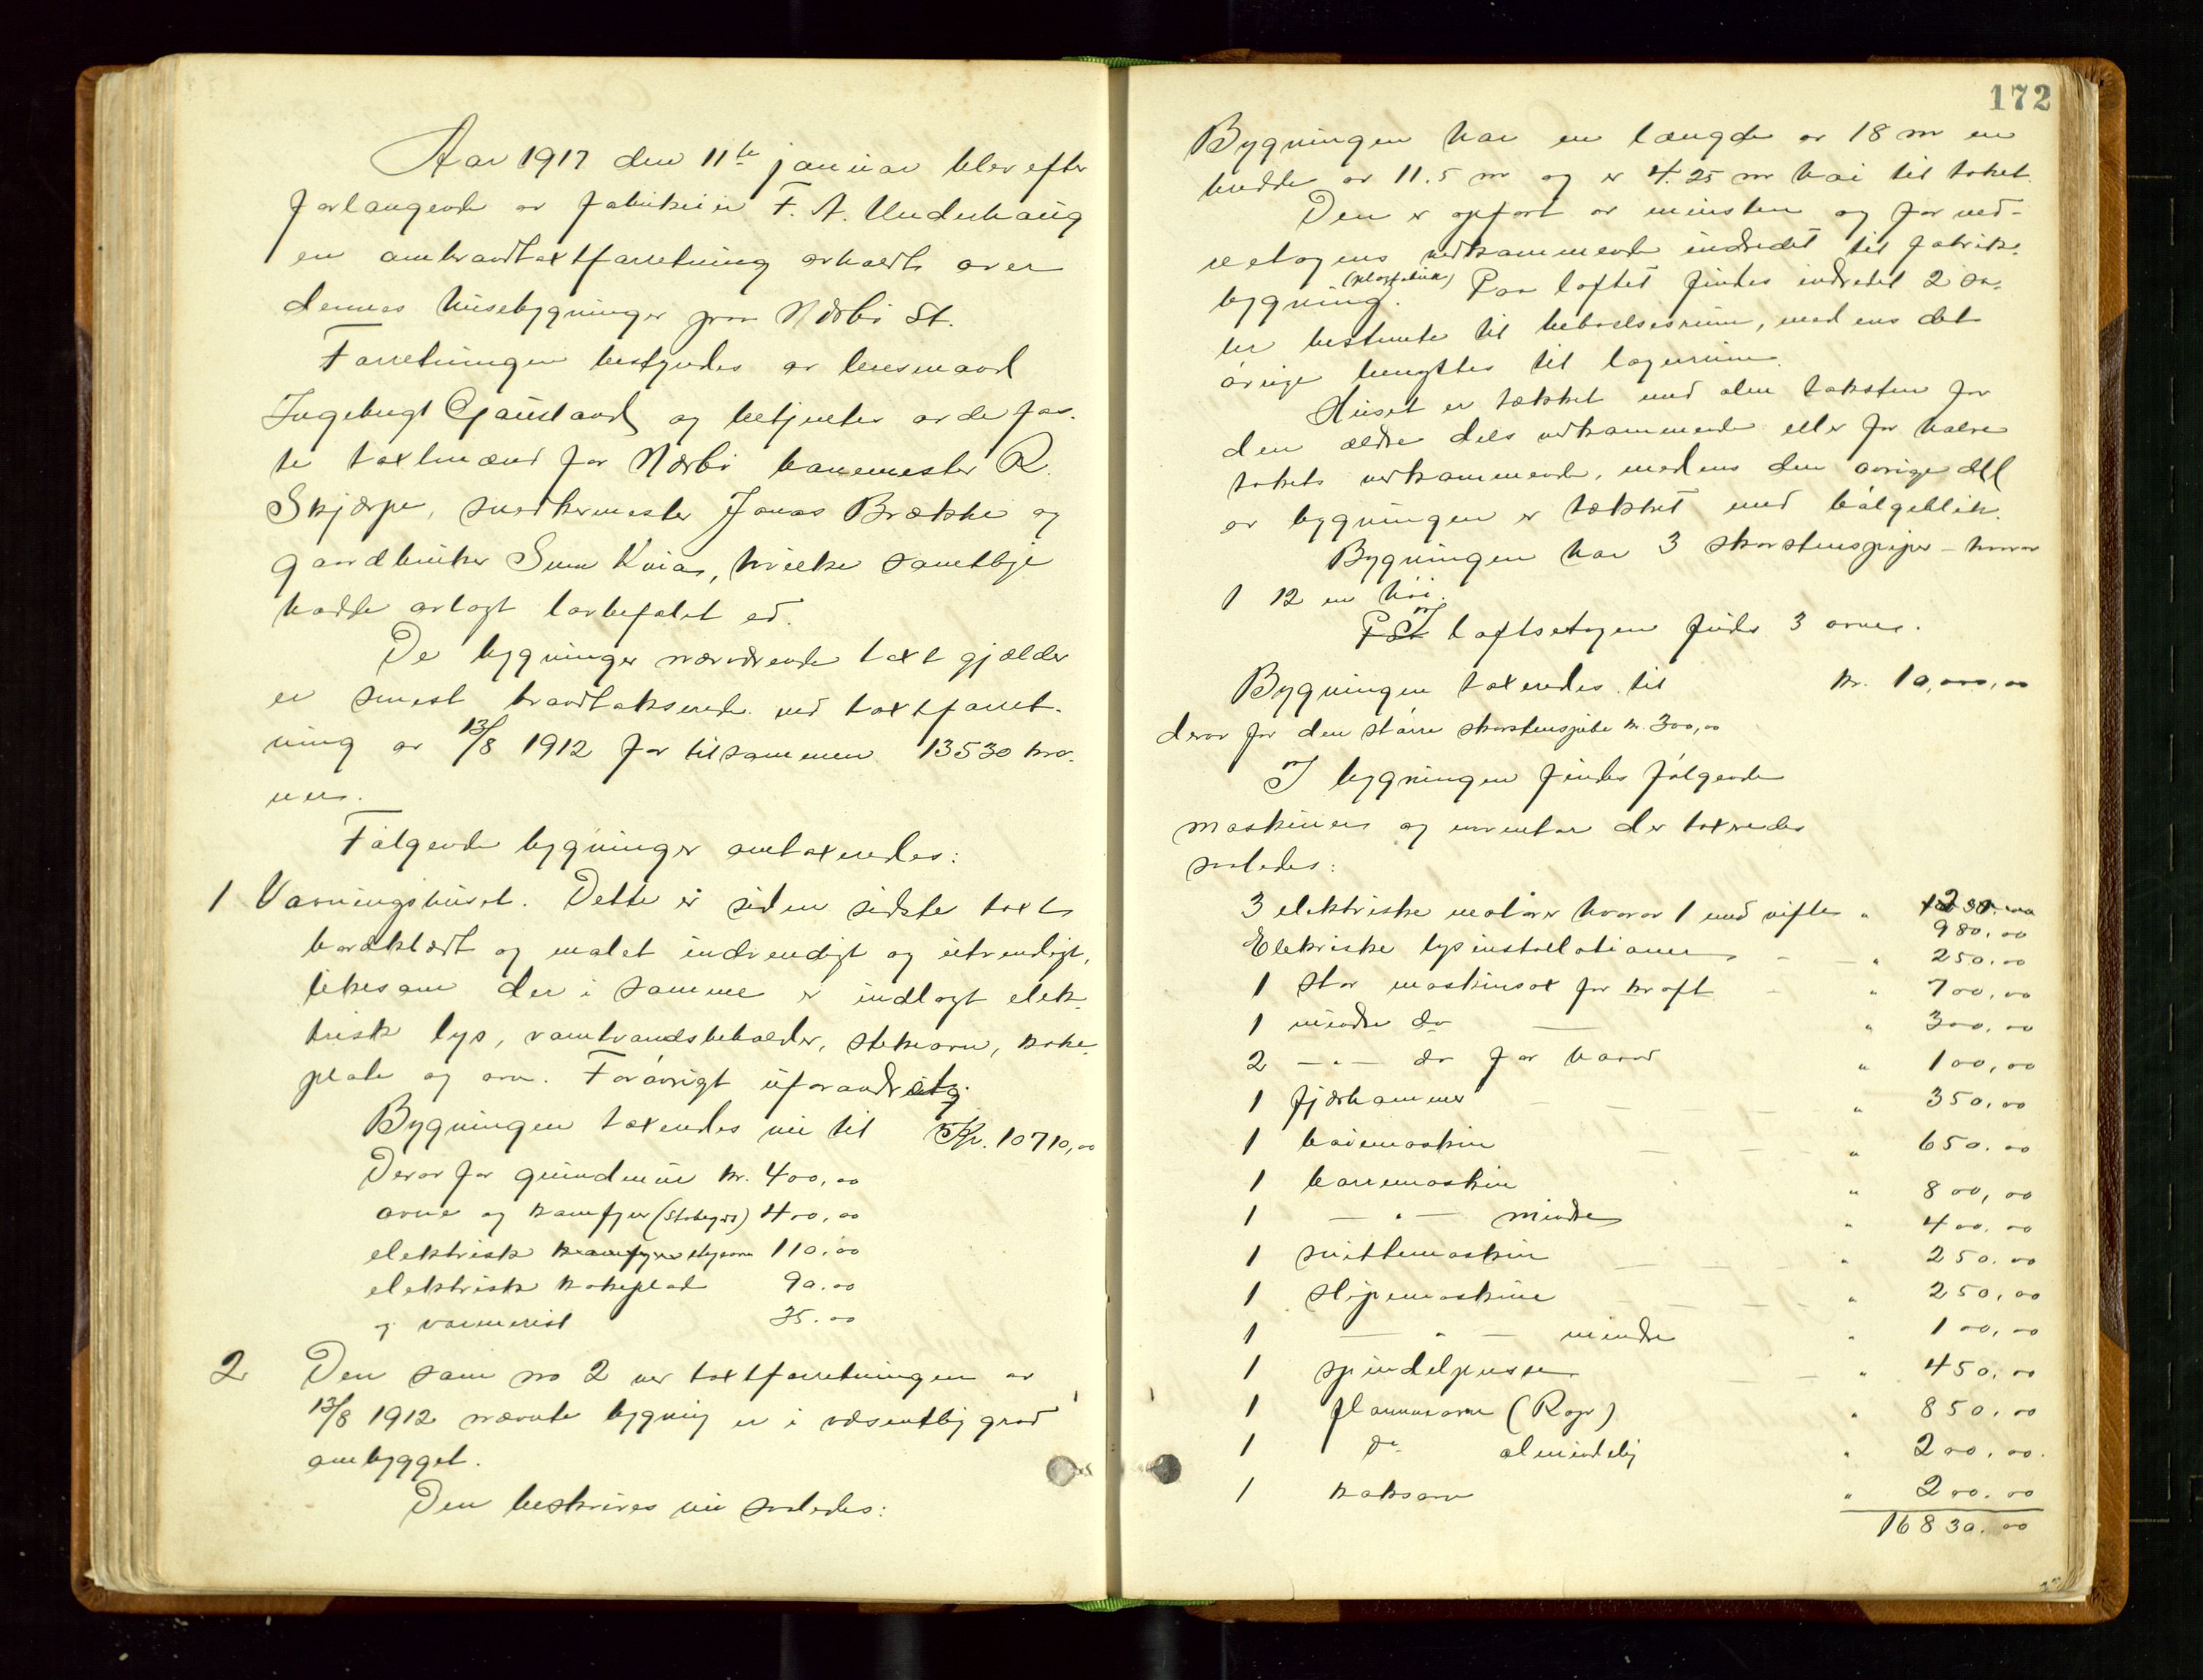 Aar 1917 den 11te januar blev efter
forlangende av fabrikeier F. A. Underhaug
en ombrandtaxtforretning avholdt over
dennes husebygninger paa Nærbø St.
Forretningen bestyredes av lensmand
Ingebrigt Gaustand og betjentes av de fas-
te taxtmænd for Nærbø banemester R.
Skjærpe, snedkermester Jonas Brække og
gaardbruker Sven Kvia, hvilke samtlige
hadde avlagt lovbefalet ed.
De bygninger nærværende taxt gjælder
er senest brandtakserede ved taxtforret-
ning av 13/8 1912 for tilsammen 13530 kro-
ner.
Følgende bygninger omtaxeredes:
1 Vaaningshuset. Dette er siden sidste taxt
bordklædt og malet indvendigt og utvendigt,
likesom der i samme er indlagt elek-
trisk lys, varmtvandsbeholder, stekeovn, koke-
plate og ovn. Forøvrigt uforandret.
Bygningen taxeredes nu til Kr. 10710,00
Derav for grundmur kr. 400,00
ovne og komfyr (støbegods) 400,00
elektrisk komfyr stegeovn 110.00
elektrisk kokeplate 90.00
og varmerist 35.00
2 Den som no 2 ver taxtforretningen av
13/8 1912 nævnte bygning er i væsentlig grad
ombygget.
Den beskrives nu saaledes:
172
Bygningen har en længde av 18 m en
bredde av 11.5 m og er 4.25 m høi til taket.
Den er opført av mursten og for ned-
reetagens vedkommende indredet til fabrik-
bygning. (plogfabrik) Paa loftet findes indredet 2 sa-
ler bestemte til beboelsesrum, medens det
øvrige benyttes til lagerrum.
Huset er tækket med alm taksten for
den ældre dels vedkommende eller for halve
takets vedkommende, medens den øvrige del
av bygningen er tækket med bølgeblik.
Bygningen har 3 skorstenspiper - hvorav
1 12 m høi.
I loftsetagen findes 3 ovner.
Bygningen taxeredes til kr. 10,000,00
derav for den større skorstenspibe kr. 300,00
I bygningen findes følgende
maskiner og inventar der taxeredes
saaledes:
3 elektriske motorer hvorav 1 med vifte "
980.00
Elektriske lysinstallationer - - " 250.00
1 stor maskinsax for kraft - " 700,00
1 mindre do — " 300.00
2 - " - do for haand " 100,00
1 fjærhammer - - - " 350.00
1 bøiemaskin - - - " 650.00
1 boremaskin " 800,00
1 — " — mindre " 400.00
1 snittemaskin - - - " 250.00
1 slipemaskine - - - " 250,00
1 — " — mindre " 100,00
1 spindelpresse - - " 450,00
1 flammeovn (Rapr) " 850.00
1 do almindelig " 200,00.
1 koksovn " 200.00
16830.00